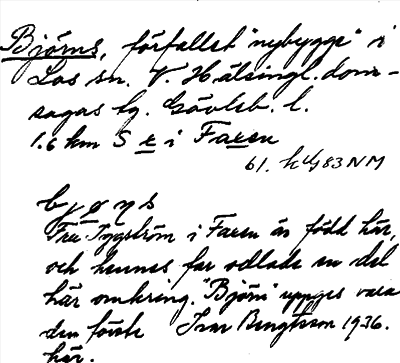 Björns, förfallet "nybygge" i
Los sn. V. Hälsingl. dom-
sagas tg. Gävleb. l.
1.6 km S e i Faxen
61. 83 NM
b j ø n s
Fru Tygström i Faxen är född här,
och hennes far odlade en del
här omkring. "Björn" uppges vara
den förste Ivar Bengtsson 1936.
här.